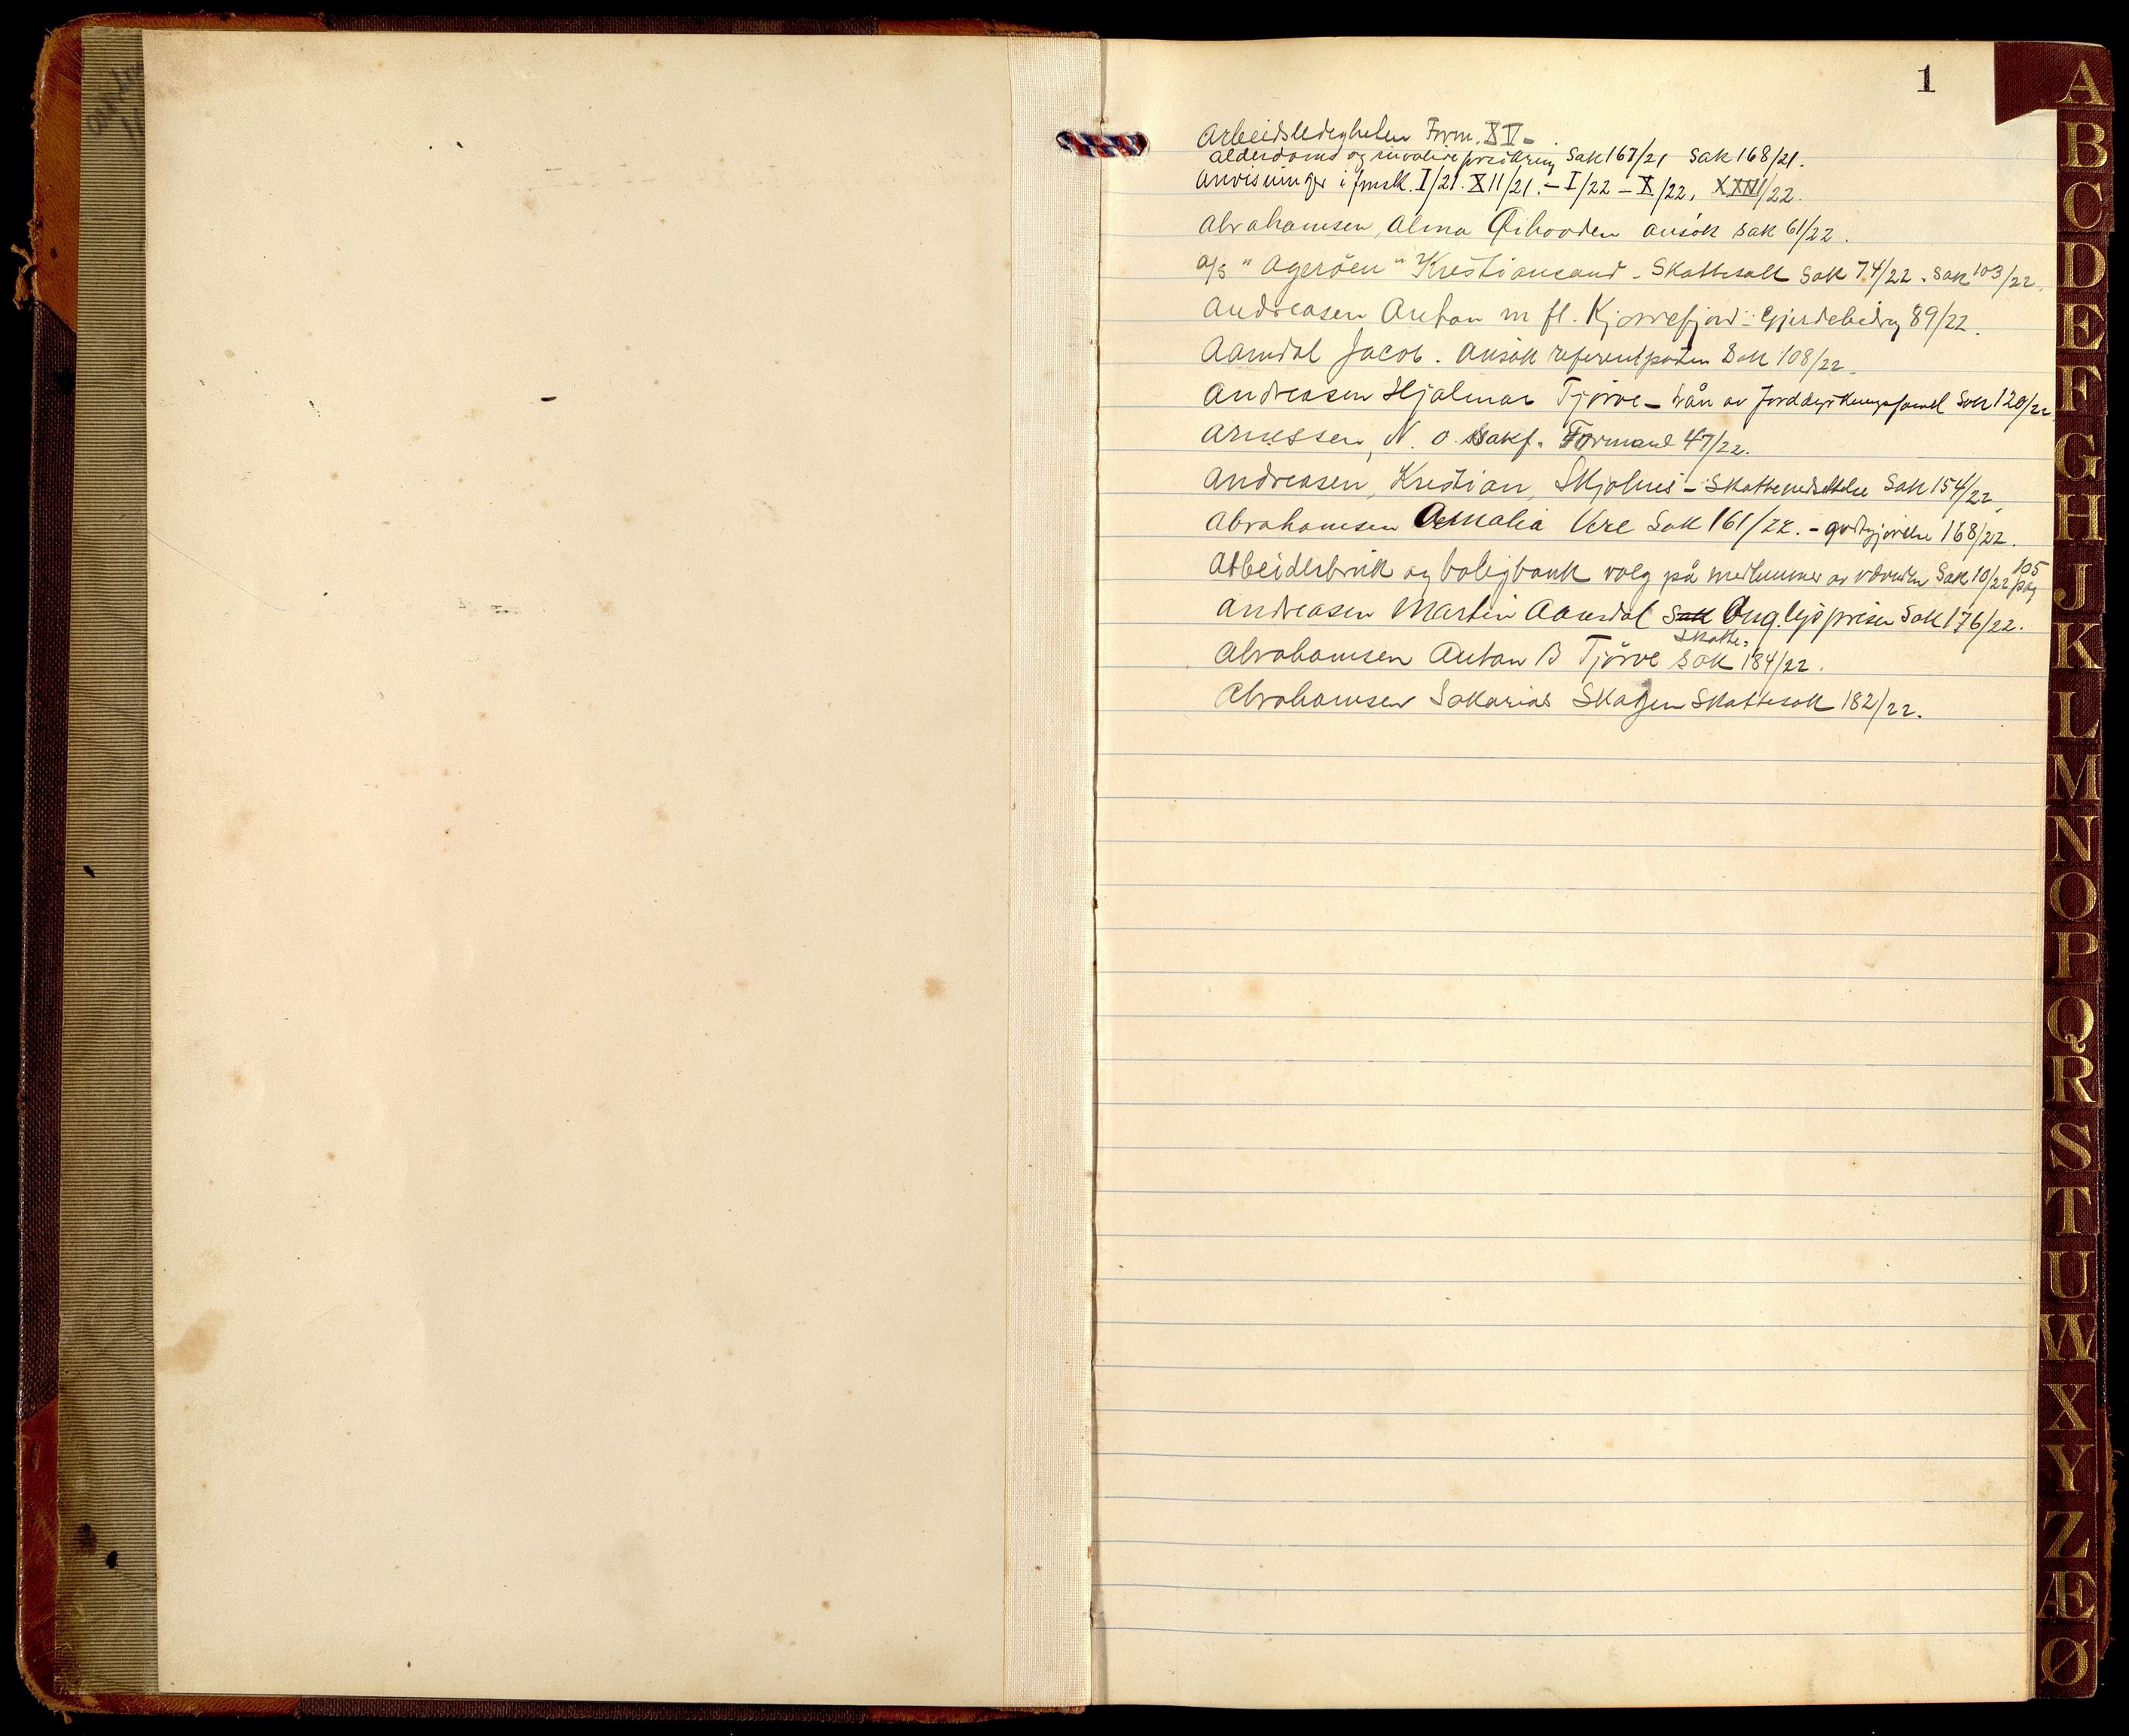 1
Arbeidsledigheten Form. XV -
Alderdoms og invalideforsikring Sak 167/21 Sak 168/21.
Anvisninger i fmsk. I/21. XII/21. - I/22 - X/22, XXII/22.
Abrahamsen, Alma ansök sak 61/22.
A/S "Ageröen" Kristiansand - Skattesak Sak 74/22. Sak 103/22.
Andreasen Anton m fl. Kjørrefjord - Gjerdebidrag 89/22.
Aamdal Jacob. Ansök referentposten Sak 108/22.
Andreasen Hjalmar Tjörve - Lån av Jorddyrkningsfond Sak 120/22
Arnessen, N. O. Sakf. Formand 47/22.
Andreasen, Kristian, Skjolnes - Skattenedsettelse Sak 154/22,
Abrahamsen Amalia Vere Sak 161/22. - godtgjörelse 168/22.
Arbeiderbruk og boligbank valg på medlemmer av Sak 10/22 105 pag
Andreasen Martin Aamdal Sak Ang. lysprisen Sak 176/22.
Abrahamsen Anton B Tjörve Skatte- Sak 184/22.
Abrahamsen Sakarias Skagen Skattesak 182/22.
A
B
C
D
E
F
G
H
J
K
L
M
N
O
P
Q
R
S
T
U
W
X
Y
Z
Æ
Ø